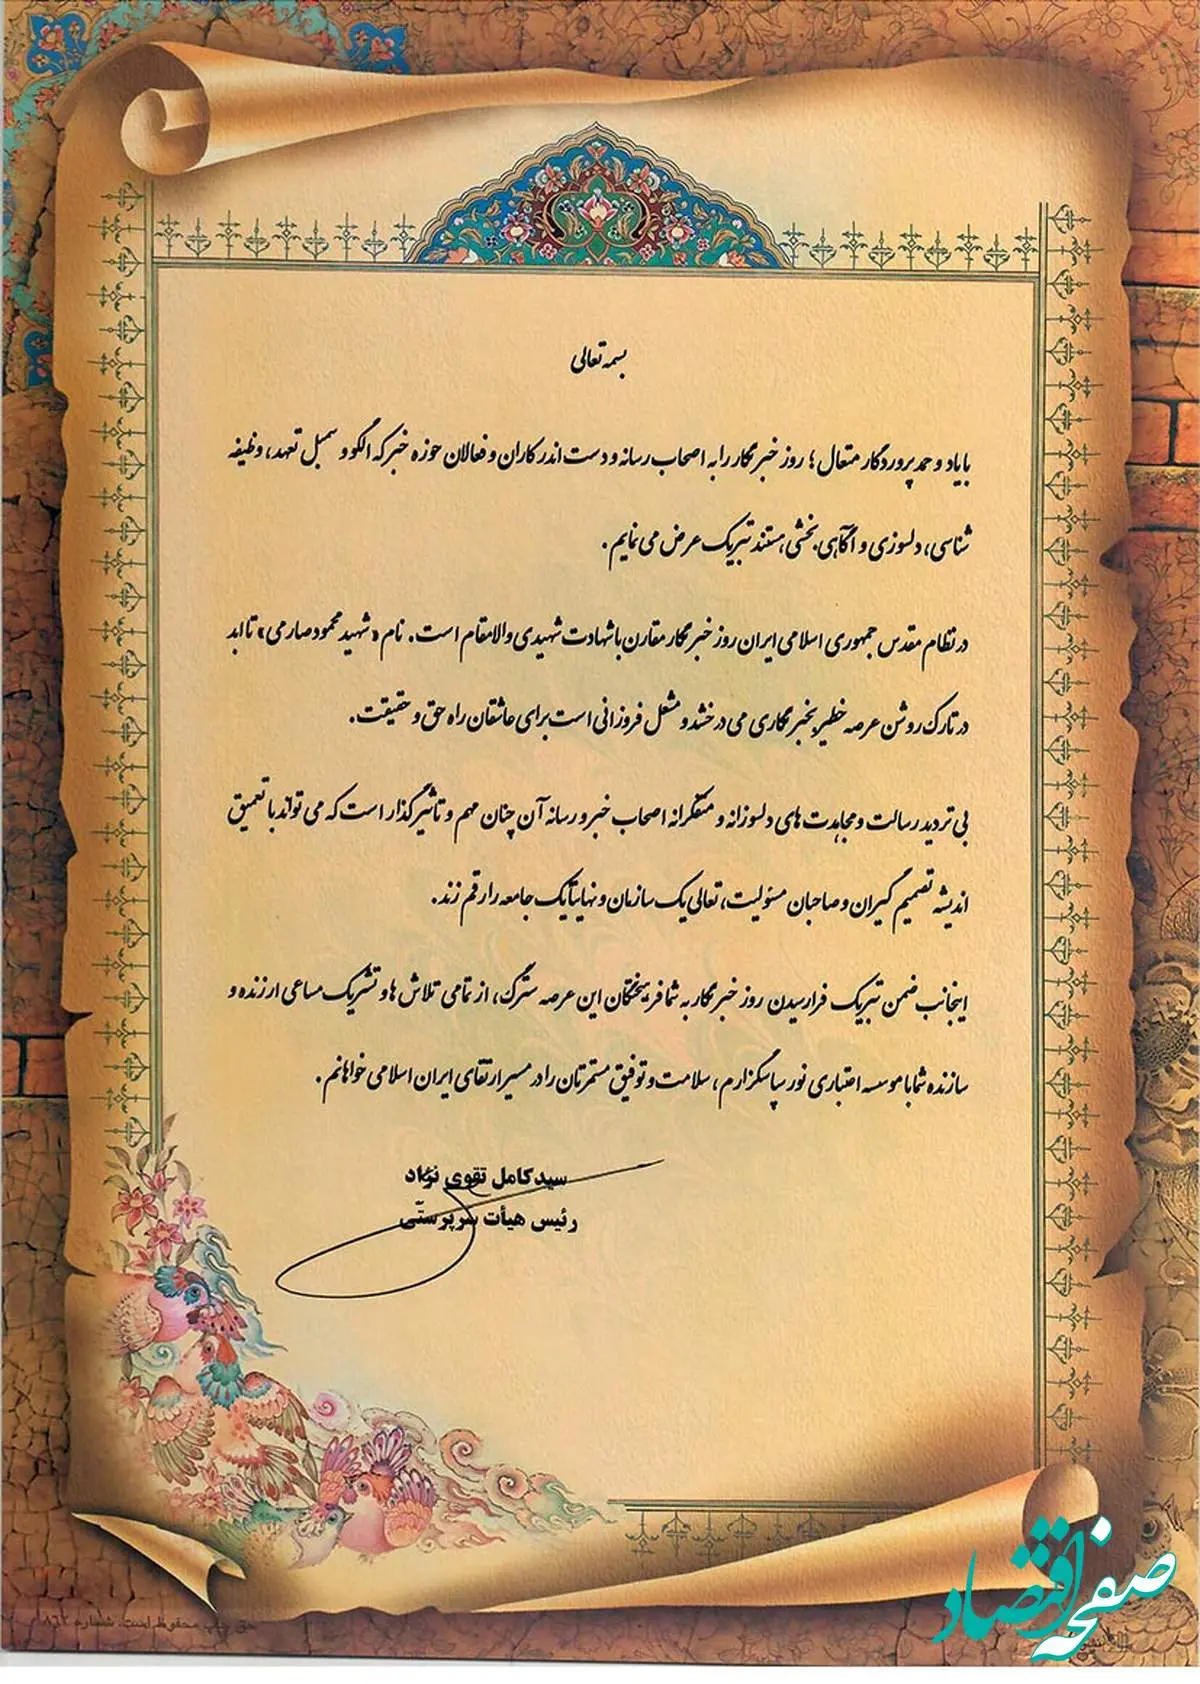 بسمه تعالی
با یاد و حمد پروردگار متعال؛ روز خبرنگار را به اصحاب رسانه و دست اندرکاران و فعالان حوزه خبر که الگو و سمبل تعهد، وظیفه
شناسی، دلسوزی و آگاهی بخشی هستند تبریک عرض می نمایم.
در نظام مقدس جمهوری اسلامی ایران روز خبرنگار مقارن با شهادت شهیدی والامقام است. نام «شهید محمود صارمی» تا ابد
در تارک روشن عرصه خطیر خبرنگاری می درخشد و مشعل فروزانی است برای عاشقان راه حق و حقیقت.
بی تردید رسالت و مجاهدت های دلسوزانه و متفکرانه اصحاب خبر و رسانه آن چنان مهم و تاثیرگذار است که می تواند با تعمیق
اندیشه تصمیم گیران و صاحبان مسئولیت، تعالی یک سازمان و نهایتاً یک جامعه را رقم زند.
اینجانب ضمن تبریک فرارسیدن روز خبرنگار به شما فرهیختگان این عرصه سترگ، از تمامی تلاش ها و تشریک مساعی ارزنده و
سازنده شما با موسسه اعتباری نور سپاسگزارم، سلامت و توفیق مستمرتان را در مسیر ارتقای ایران اسلامی خواهانم.
سید کامل تقوی نژاد
رئیس هیأت سرپرستی
صفحه اقتصاد
محفوظ است. شماره